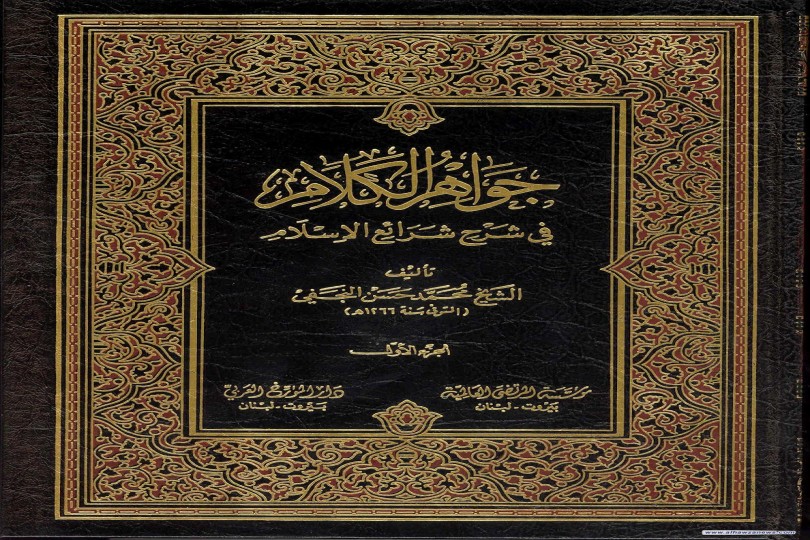 جواهر الكلام
في شرح شرائع الإسلام
تأليف
الشيخ محمد حسن النجفي
(المتوفى سنة ١٢٦٦هـ)
الجزء الأول
مؤسسة المرتضى العالمية
بيروت - لبنان
دار المؤرخ العربي
بيروت - لبنان
www.alhawzanews.com